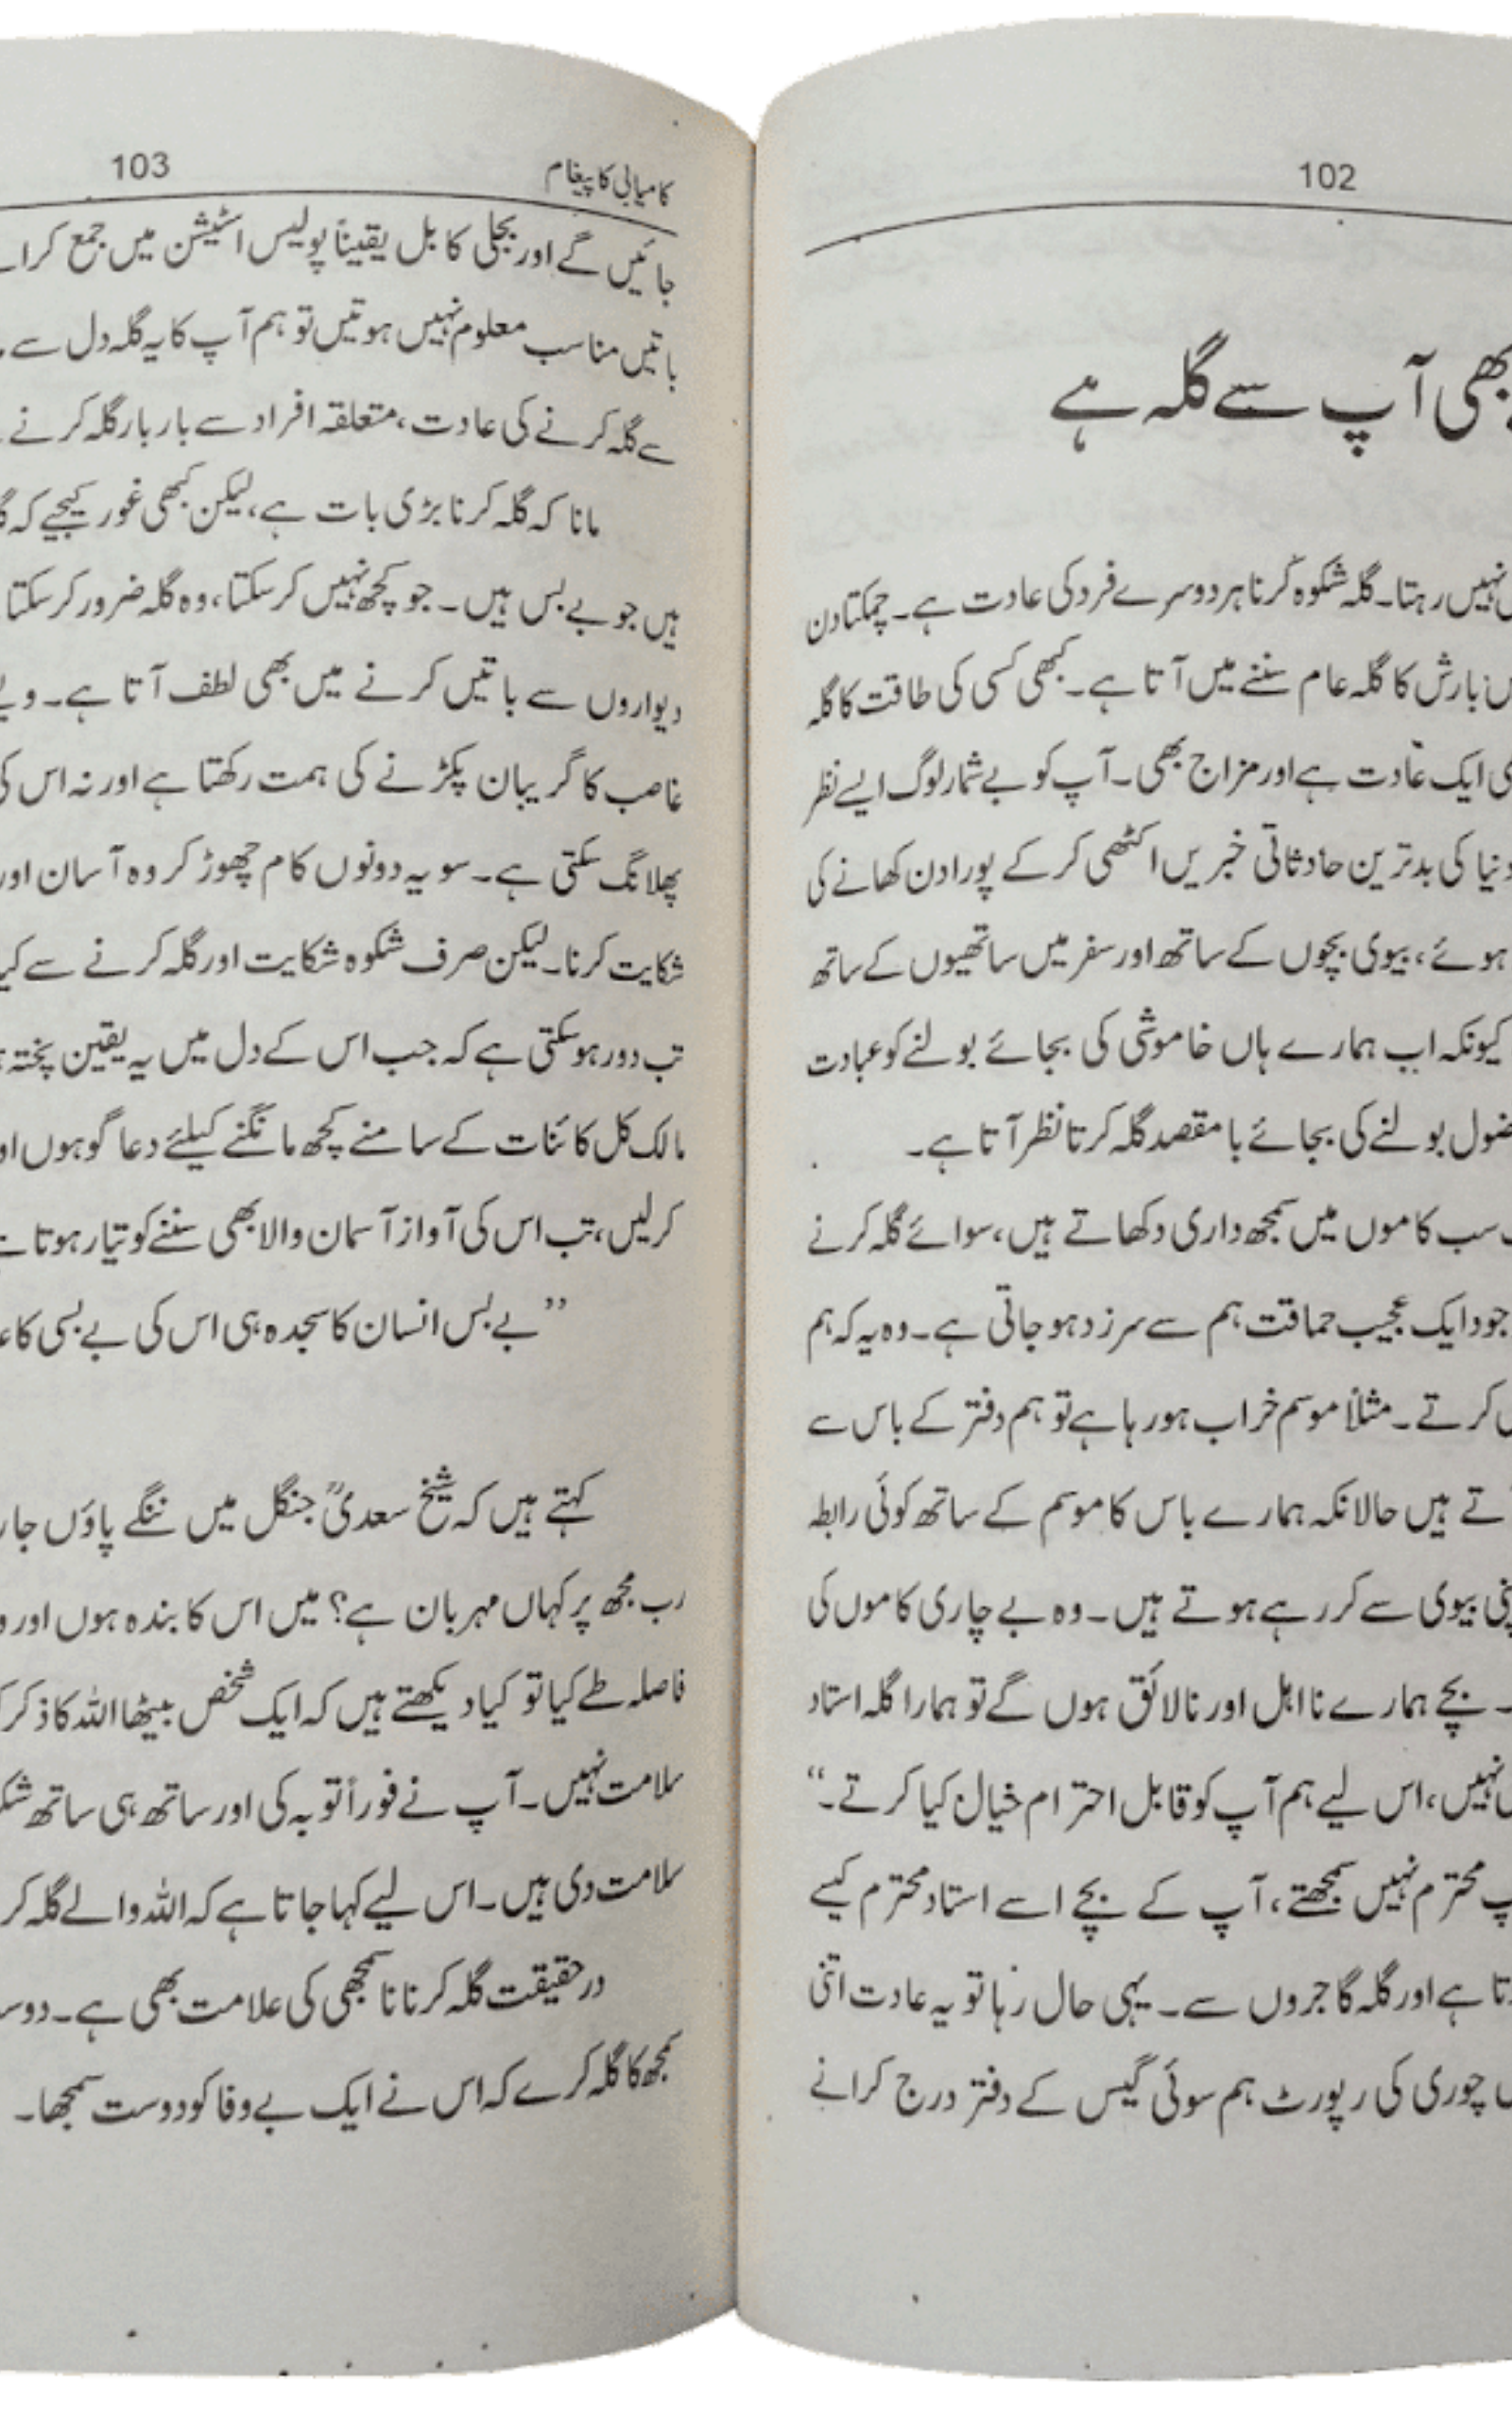 102
بھی آپ سے گلہ ہے
نہیں رہتا۔ گلہ شکوہ کرنا ہر دوسرے فرد کی عادت ہے۔ چمکتا دن
بارش کا گلہ عام سننے میں آتا ہے۔ کبھی کسی کی طاقت کا گلہ
ایک عادت ہے اور مزاج بھی۔ آپ کو بے شمار لوگ ایسے نظر
دنیا کی بدترین حادثاتی خبریں اکٹھی کر کے پورا دن کھانے کی
ہوئے، بیوی بچوں کے ساتھ اور سفر میں ساتھیوں کے ساتھ
کیونکہ اب ہمارے ہاں خاموشی کی بجائے بولنے کو عبادت
بولنے کی بجائے با مقصد گلہ کرتا نظر آتا ہے۔
سب کاموں میں سمجھ داری دکھاتے ہیں، سوائے گلہ کرنے
ایک عجیب حماقت ہم سے سرزد ہو جاتی ہے۔ وہ یہ کہ ہم
کرتے۔ مثلاً موسم خراب ہو رہا ہے تو ہم دفتر کے باس سے
تے ہیں حالانکہ ہمارے باس کا موسم کے ساتھ کوئی رابطہ
بیوی سے کر رہے ہوتے ہیں۔ وہ بے چاری کاموں کی
۔ بچے ہمارے نا اہل اور نالائق ہوں گے تو ہمارا گلہ استاد
نہیں، اس لیے ہم آپ کو قابل احترام خیال کیا کرتے۔“
محترم نہیں سمجھتے، آپ کے بچے اسے استاد محترم کیسے
تا ہے اور گلہ گاجروں سے۔ یہی حال رہا تو یہ عادت اتنی
چوری کی رپورٹ ہم سوئی گیس کے دفتر درج کرانے
کامیابی کا پیغام 103
جائیں گے اور بجلی کا بل یقیناً پولیس اسٹیشن میں جمع
باتیں مناسب معلوم نہیں ہوتیں تو ہم آپ کا یہ گلہ دل سے
سے گلہ کرنے کی عادت، متعلقہ افراد سے بار بار گلہ کرنے
مانا کہ گلہ کرنا بڑی بات ہے، لیکن کبھی غور کیجیے کہ
ہیں جو بے بس ہیں۔ جو کچھ نہیں کر سکتا، وہ گلہ ضرور کر سکتا
دیواروں سے باتیں کرنے میں بھی لطف آتا ہے۔
غاصب کا گریبان پکڑنے کی ہمت رکھتا ہے اور نہ اس کی
پھلانگ سکتی ہے۔ سو یہ دونوں کام چھوڑ کر وہ آسان اور
شکایت کرنا۔ لیکن صرف شکوہ شکایت اور گلہ کرنے سے
تب دور ہو سکتی ہے کہ جب اس کے دل میں یہ یقین پختہ
مالک کل کائنات کے سامنے کچھ مانگنے کیلئے دعا گو ہوں
کر لیں، تب اس کی آواز آسمان والا بھی سننے کو تیار ہوتا
”بے بس انسان کا سجدہ ہی اس کی بے بسی کا
کہتے ہیں کہ شیخ سعدیؒ جنگل میں ننگے پاؤں
رب مجھ پر کہاں مہربان ہے؟ میں اس کا بندہ ہوں اور
فاصلہ طے کیا تو کیا دیکھتے ہیں کہ ایک شخص بیٹھا اللہ کا ذکر
سلامت نہیں۔ آپ نے فوراً توبہ کی اور ساتھ ہی ساتھ
سلامت دی ہیں۔ اس لیے کہا جاتا ہے کہ اللہ والے گلہ
درحقیقت گلہ کرنا نا سمجھی کی علامت بھی ہے۔
سمجھ کا گلہ کرے کہ اس نے ایک بے وفا کو دوست سمجھا۔